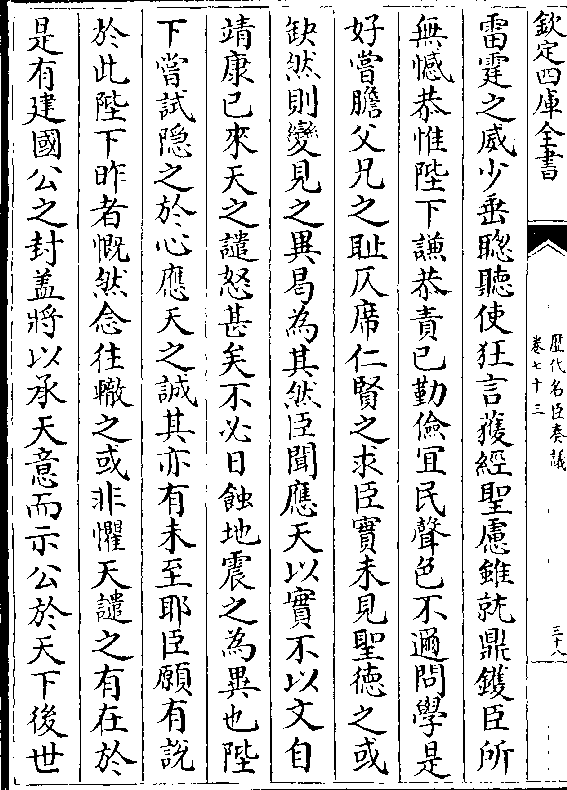 欽定四庫全書
歷代名臣奏議
卷七十三
三十八
雷霆之威少垂聰聽使狂言獲經聖慮雖就鼎鑊臣所
無憾恭惟陛下謙恭責已勤儉宜民聲色不邇問學是
好嘗膽父兄之耻仄席仁賢之求臣實未見聖德之或
缺然則變見之異曷為其然臣聞應天以實不以文自
靖康已來天之譴怒甚矣不必日蝕地震之為異也陛
下嘗試隐之於心應天之誠其亦有未至耶臣願有說
於此陛下昨者慨然念往轍之或非懼天譴之有在於
是有建國公之封盖將以承天意而示公於天下後世